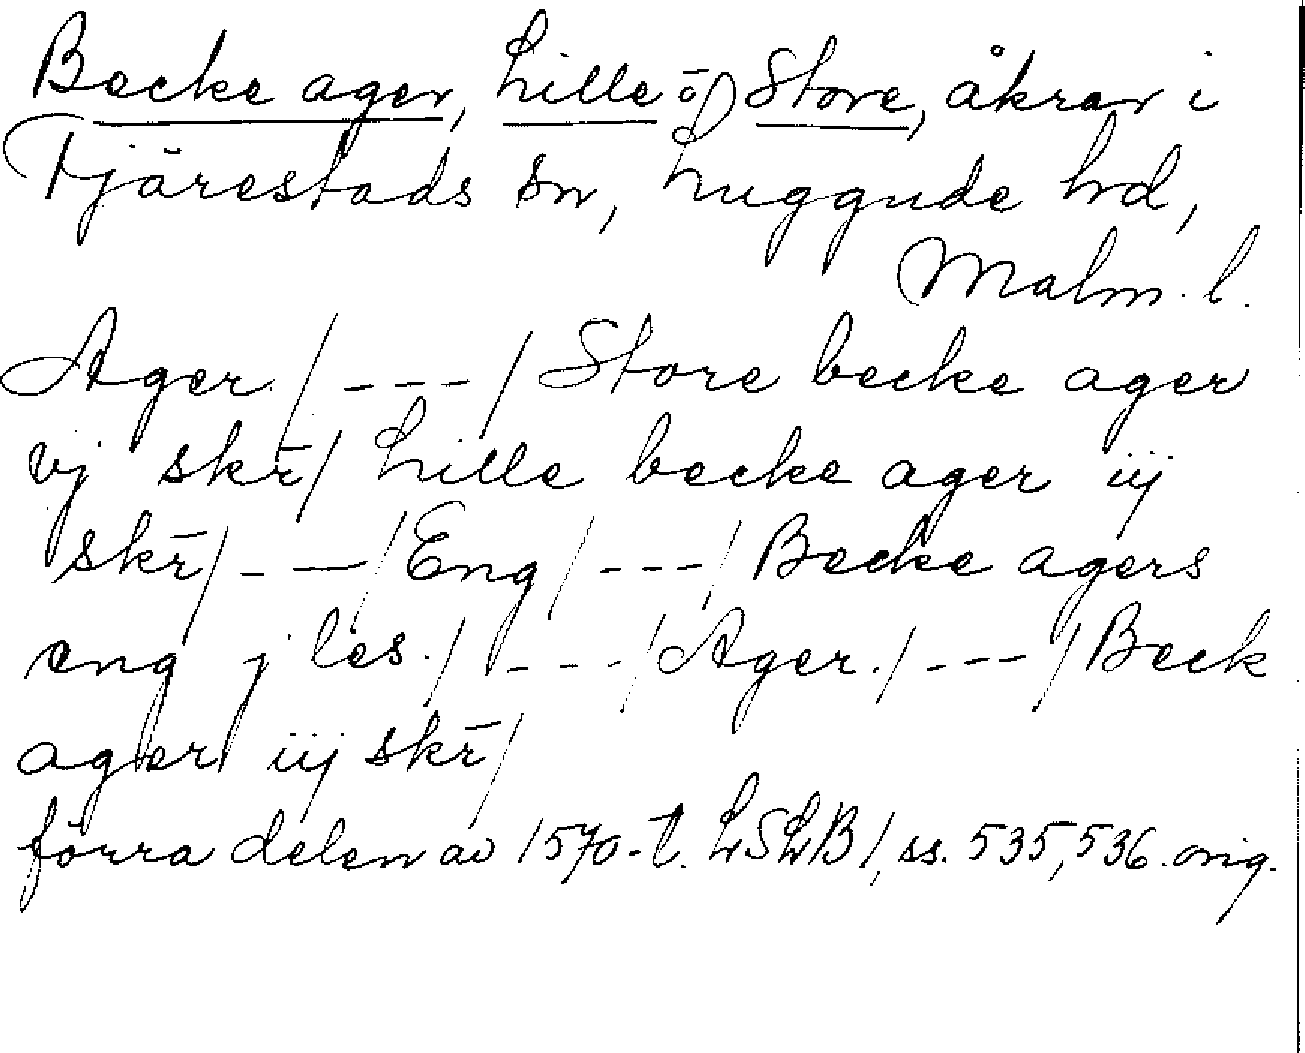 Becke ager, Lille o Store, åkrar i
Tjärestads sn, Luggude hd,
Malm. l.
Ager / --- / Store becke ager
vj skr̄ / Lille becke ager iij
skr̄ / --- / Eng / --- / Becke agers
eng j les. / --- / Ager. / --- / Beck
ager iij skr̄ /
förra delen av 1570-t. LSLB 1, ss. 535, 536. orig.